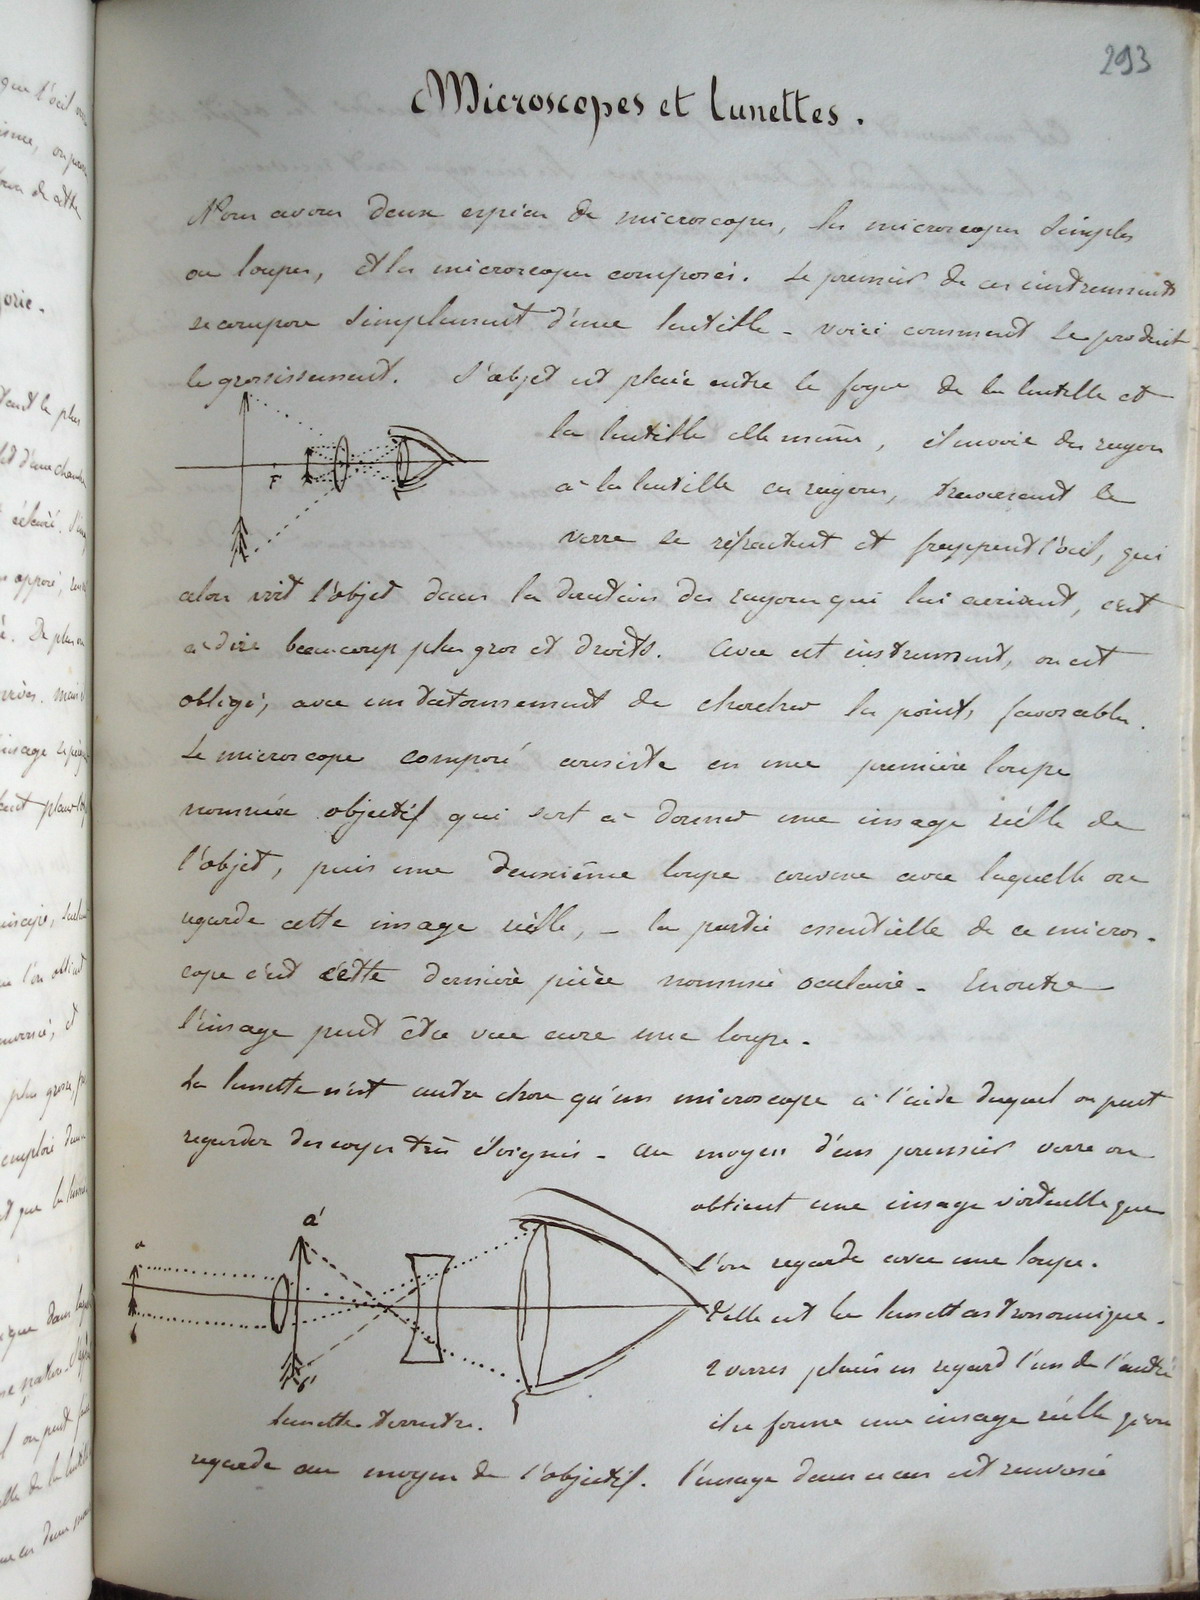 293
Microscopes et lunettes.
Nous avons deux espèces de microscopes, les microscopes simples
ou loupes, et les microscopes composés. Le premier de ces instruments
se compose simplement d'une lentille - voici comment se produit
le grossissement. L'objet est placé entre le foyer de la lentille et
la lentille elle même, il envoie des rayons
à la lentille ces rayons, traversant le
verre se réfractent et frappent l'œil, qui
alors voit l'objet dans la direction des rayons qui lui arrivent, c'est
à dire beaucoup plus gros et droits. Avec cet instrument, on est
obligé, avec un tatonnement de chercher les points favorables.
Le microscope composé consiste en une première loupe
nommée objectif qui sert à donner une image réelle de
l'objet, puis une deuxième loupe convexe avec laquelle on
regarde cette image réelle, - la partie essentielle de ce micros-
cope c'est cette dernière pièce nommée oculaire. En outre
l'image peut être vue avec une loupe.
La lunette n'est autre chose qu'un microscope à l'aide duquel on peut
regarder des très éloignés - au moyen d'un premier verre on
obtient une image virtuelle que
l'on regarde avec une loupe.
telle est la lunette astronomique.
2 verres placés en regard l'un de l'autre
forme une image réelle
regarde au moyen de l'objectif. l'image dans ce cas est renversée
F
a
b
a'
b'
lunette terrestre.